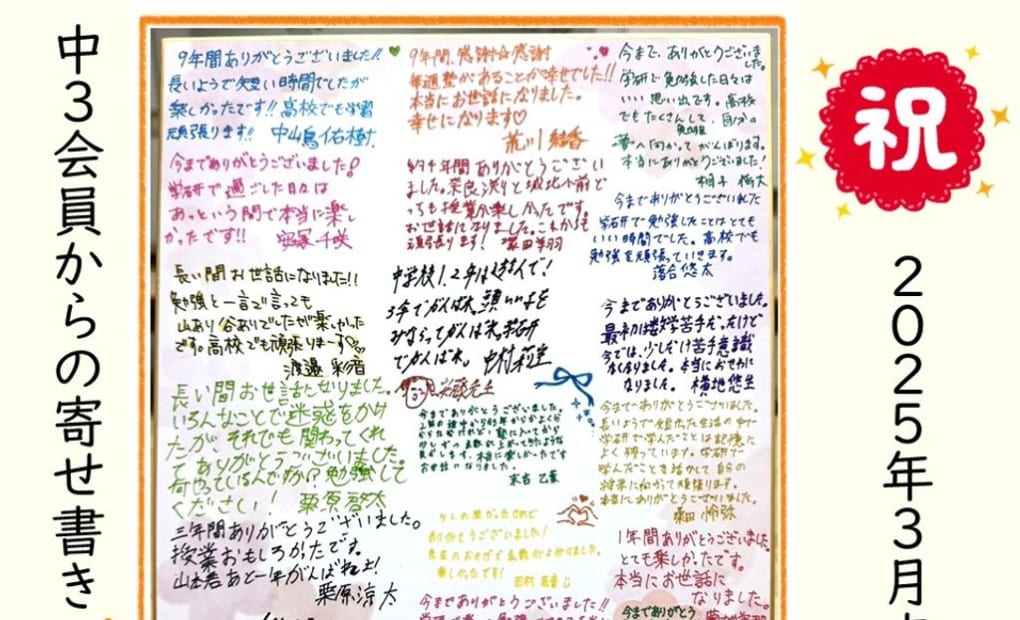 中3会員からの寄せ書き
祝
2025年3月
9年間ありがとうございました!!
長いようで短い時間でしたが
楽しかったです!! 高校でも学習
頑張ります!! 中山島佑樹
今までありがとうございました!
学研で過ごした日々は
あっという間で本当に楽し
かったです!! 千咲
長い間お世話になりました!!
勉強と一言で言っても
山あり谷ありでしたが楽しかった
です。高校でも頑張りまーす♡
渡邉 彩音
長い間お世話になりました。
いろんなことで迷惑をかけ
たが、それでも関わってくれ
てありがとうございました。
何やっているんですか?勉強して
ください! 栗原啓太
三年間ありがとうございました。
授業おもしろかったです。
あと一年がんばれよ!
栗原涼太
9年間、感謝☆感謝
毎週塾があることが幸せでした!!
本当にお世話になりました。
幸せになります♡
荒川 結香
約9年間ありがとうござい
ました。奈良渡りと城北小前ど
っちも授業が楽しかったです。
お世話になりました。これからも
頑張ります!
中学校1、2年は遊んで!
3年でがんばれ。頭いい子を
みならってがんばれ。学研
でがんばれ。中村
先生
今までありがとうございました。
お世話になりました。
末吉 乙葉
ありがとうございました!
先生のおかげで点数が上がりました。
楽しかったです!
今までありがとうございました!!
今まで、ありがとうございま
した。
学研で勉強した日々は
いい思い出です。高校
でもたくさんして、自分の
勉強
夢へ向かってがんばります。
本当にありがとうございました!
今までありがとうございました
学研で勉強したことはとても
いい時間でした。高校でも
勉強を頑張っていきます。
落合悠太
今までありがとうございました。
最初は数学苦手だったけど
今では、少しだけ苦手意識
なくなりました。本当におせわに
なりました。横地悠生
今までありがとうございました。
長いようで短かった生活の中で
学研で学んだことは記憶に
よく残っています。学研で
学んだことを活かして自分の
将来に向かって頑張ります。
本当にありがとうございました。
1年間ありがとうございました。
とても楽しかったです。
本当にお世話に
なりました。
今までありがとう